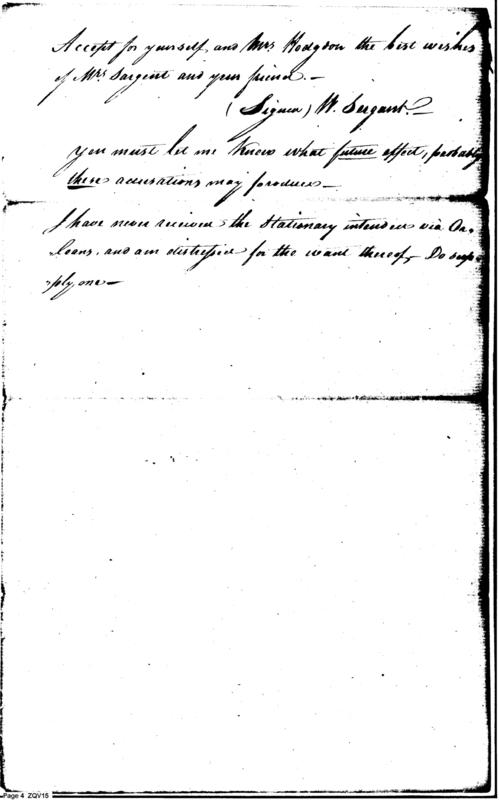 Accept for yourself, and Mrs Hodgdon the best wishes
of Mrs Sargent and your friend.—
(Signed) W. Sargent.
You must let me know what future effect, probably
these accusations may produce—
I have never received the Stationary intended via Or,
leans, and am distressed for the want thereof,— Do sup-
-ply, one—
Page 4 ZQV15